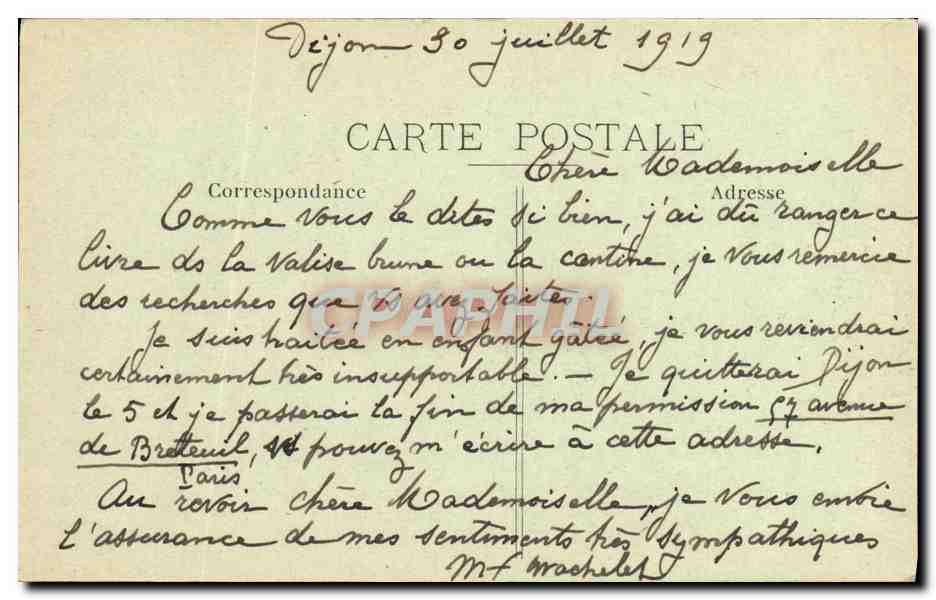 Dijon 30 juillet 1919
CARTE POSTALE
Chère Mademoiselle
Correspondance
Adresse
Comme vous le dites si bien, j'ai dû ranger ce
livre ds la valise brune ou la cantine, je vous remercie
des recherches que vs avez faites.
CPAPHIL
Je suis traitée en enfant gâtée, je vous reviendrai
certainement très insupportable. — Je quitterai Dijon
le 5 et je passerai la fin de ma permission 57 avenue
de Breteuil, vs pouvez m'écrire à cette adresse.
Paris
Au revoir chère Mademoiselle, je vous envoie
l'assurance de mes sentiments très sympathiques